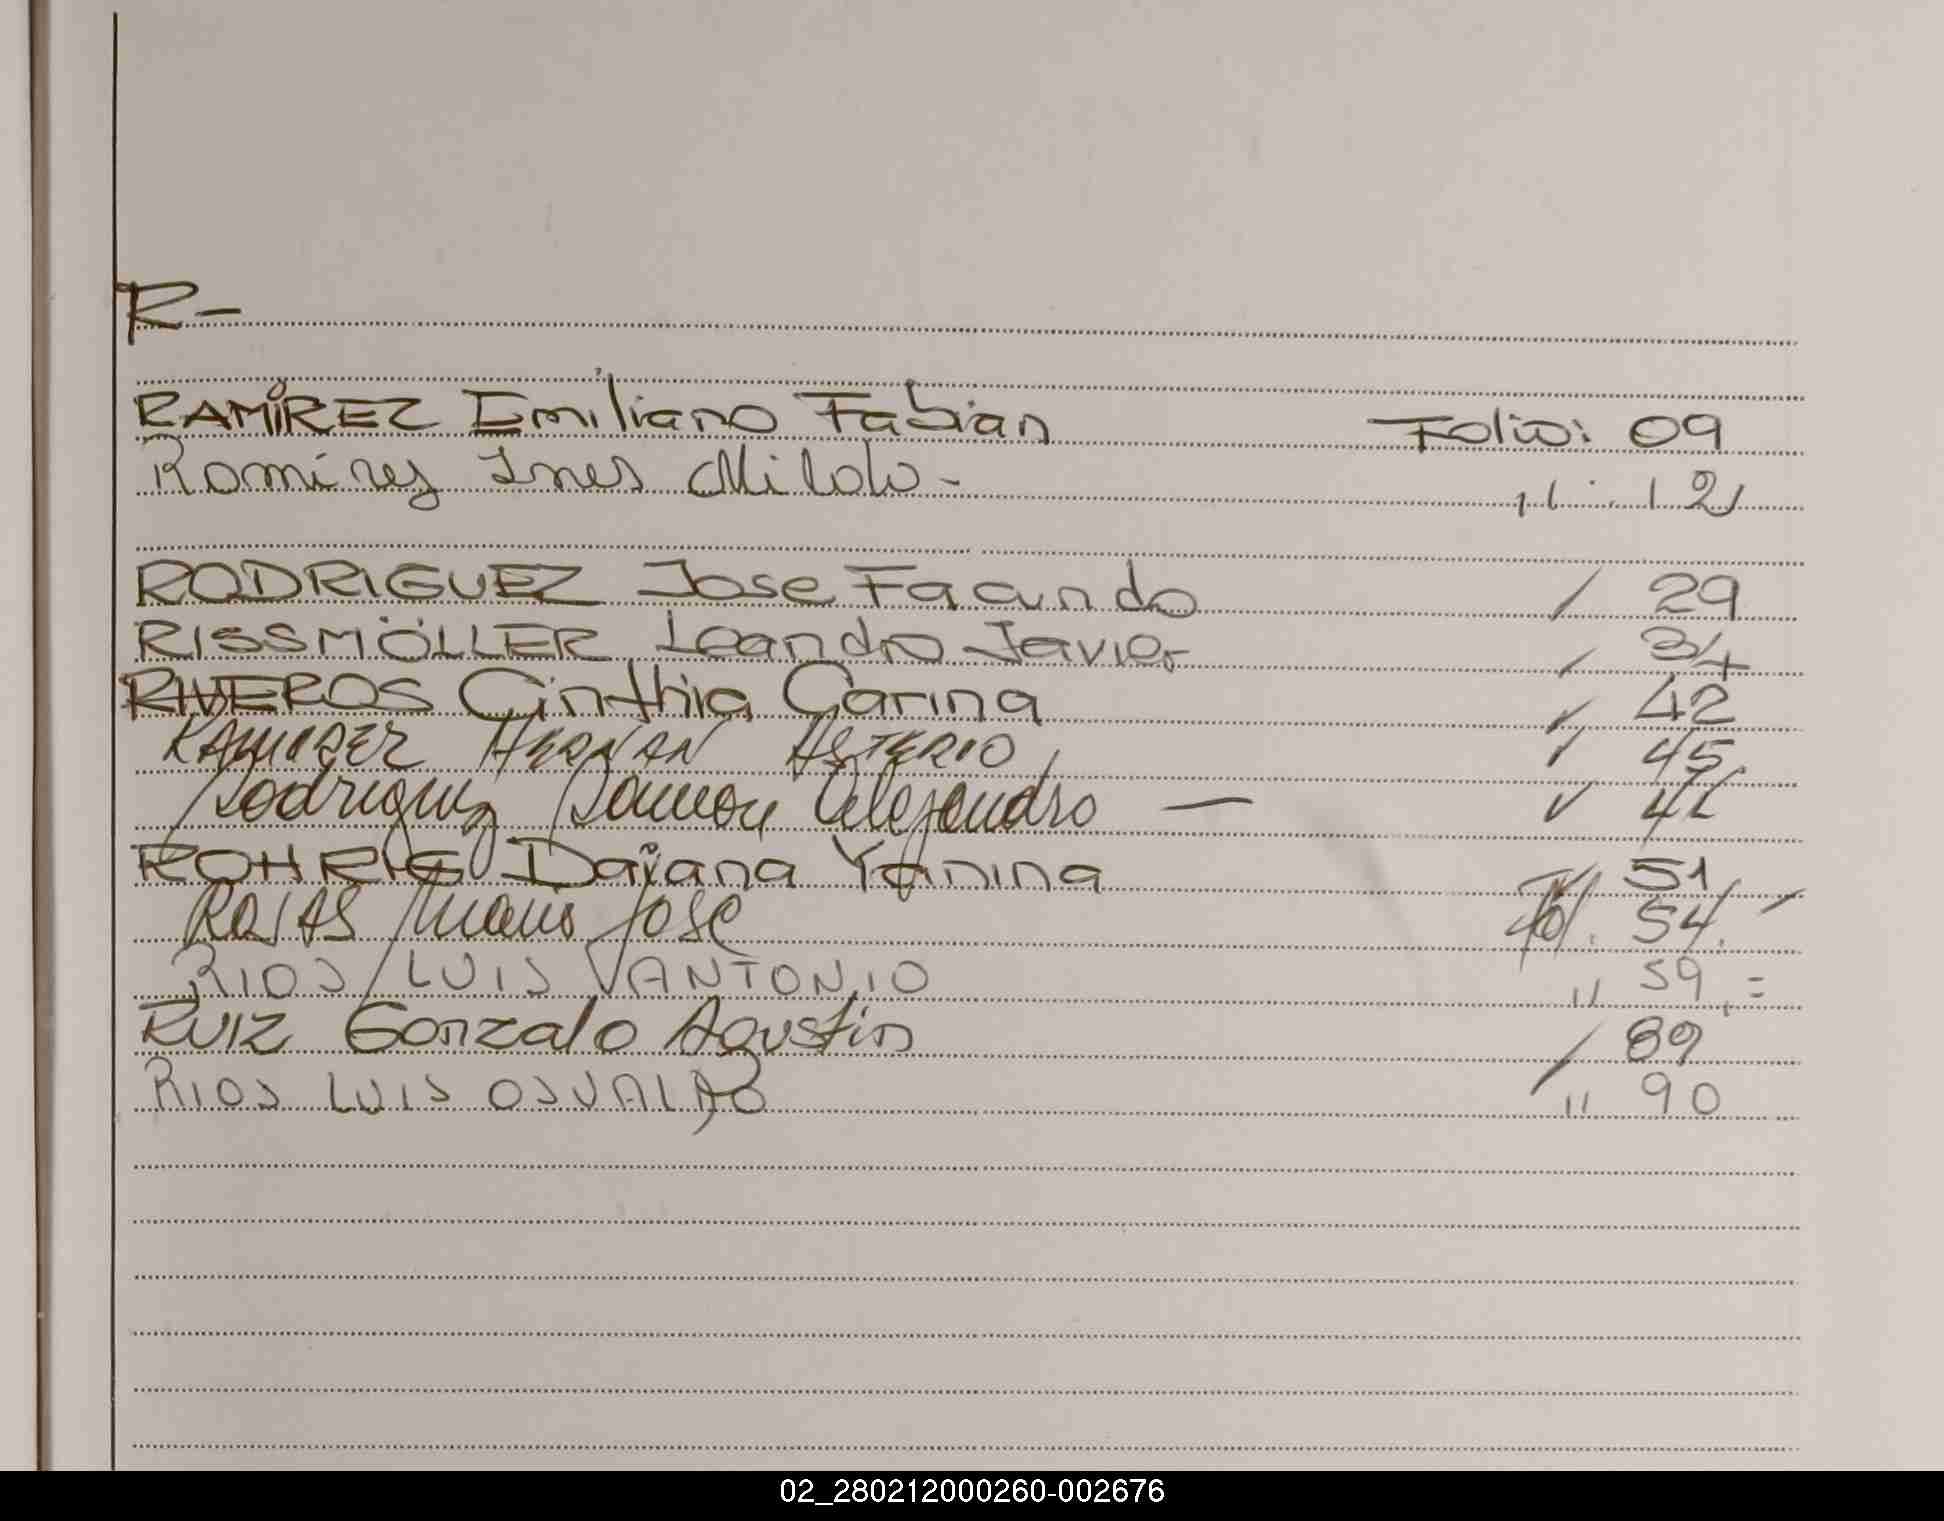 R-
RAMÍREZ Emiliano Fabian Folio: 09
Ramírez Ines Milolo - " : 12
RODRIGUEZ Jose Facundo / 29
RISSMÖLLER Leandro Javier / 34
RIVEROS Cinthia Carina / 42
RAMIREZ HERNAN ASTERIO / 45
Rodriguez Ramon Alejandro — /
ROHRIG Daiana Yanina Fol. 51
ROJAS JOSE Fol. 54. -
RIOS LUIS ANTONIO " 59.=
RUIZ Gonzalo Agustin / 89
RIOS LUIS OSVALDO " 90
02_280212000260-002676